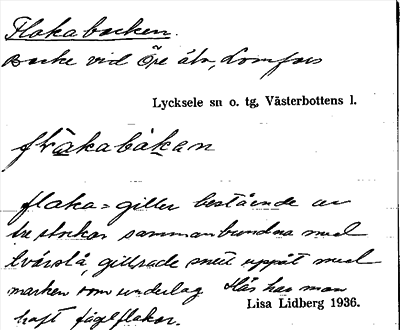 Flakabacken.
Backe vid Öre älv, Lomfors
Lycksele sn o. tg, Västerbottens l.
flakabakan
flaka = giller bestående av
tre stockar sammanbundna med
tvärslå, gillrade snett uppåt med
marken som underlag Här has man
haft fågelflakor.
Lisa Lidberg 1936.